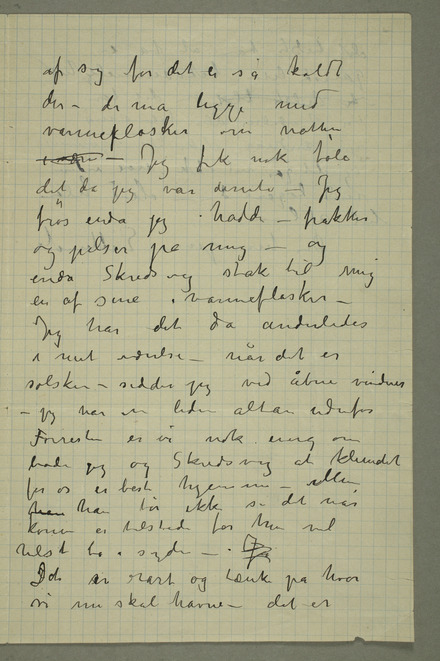 af sig for det er så koldt
der – de må ligge med
varmeflasker om natten
– Jeg fik nok føle
det da jeg var dernede – Jeg
frøs enda jeg hadde – frakker
og pelser på mig – og
enda Skredsvig stak til mig
en af sine varmeflasker –
Jeg har det da anderledes
i mit værelse – når det er
solskin – sidder jeg ved åbne vinduer
– jeg har en liden altan udenfor
Forresten er vi nok enig om
både jeg og Skredsvig at klimaet
for os er best hjemme – men
han tør ikke si det når
konen er tilstede for hun vil
helst bo i syden –
Det er rart og tænke på hvor
vi nu skal havne – det er